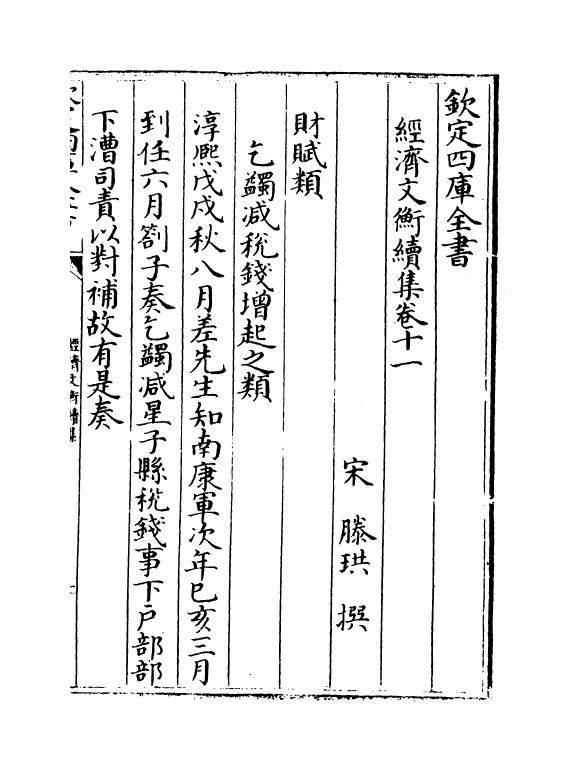 欽定四庫全書
經濟文衡續集卷十一
宋 滕珙 撰
財賦類
乞蠲減稅錢增起之類
淳熙戊戌秋八月差先生知南康軍次年己亥三月
到任六月劄子奏乞蠲减星子縣稅錢事下戶部部
下漕司責以對補故有是奏
經濟文衡續集